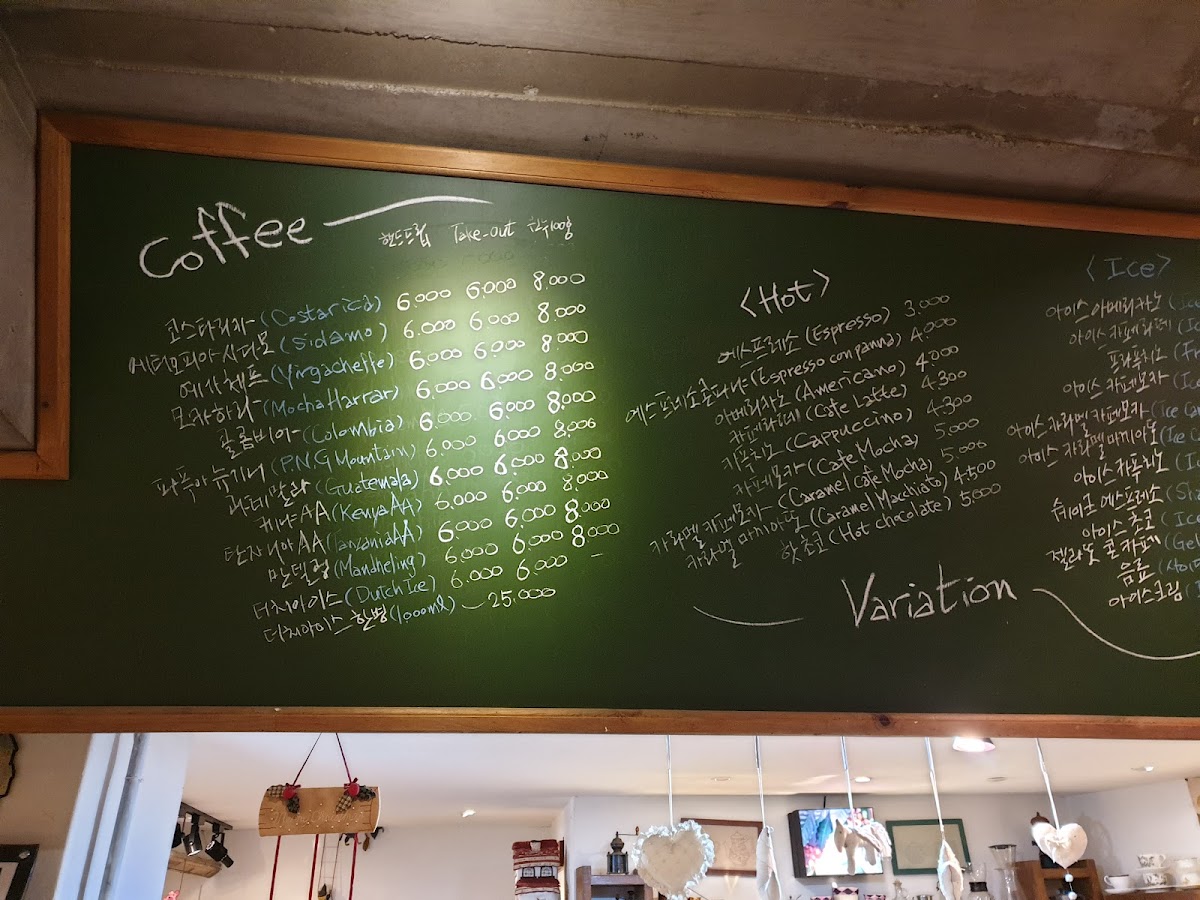 Coffee
핸드드립 Take-out 원두100g
코스타리카-(Costarica) 6.000 6.000 8.000
에티오피아 시다모(Sidamo) 6.000 6.000 8.000
예가체프(Yirgacheffe) 6.000 6.000 8.000
모카하라-(MochaHarrar) 6.000 6.000 8.000
콜롬비아-(Colombia) 6.000 6.000 8.000
파푸아 뉴기니(P.N.G Mountain) 6.000 6.000 8.000
과테말라(Guatemala) 6.000 6.000 8.000
케냐-AA(KenyaAA) 6.000 6.000 8.000
탄자니아AA(TanzaniaAA) 6.000 6.000 8.000
만델링(Mandheling) 6.000 6.000 8.000
더치아이스(Dutch Ice) 6.000 6.000 -
더치아이스-한병(1000ml) - 25.000
<Hot>
에스프레소(Espresso) 3.000
에스프레소콘파나-(Espresso con panna) 4.000
아메리카노(Americano) 4.000
카페라떼(Cafe Latte) 4.300
카푸치노(Cappuccino) 4.300
카페모카(Cafe Mocha) 5.000
카라멜 카페모카-(Caramel Cafe Mocha) 5.000
카라멜 마끼아또(Caramel Macchiato) 4.500
핫 초코(Hot chocolate) 5.000
Variation
<Ice>
아이스 아메리카노
아이스 카페라떼
프라푸치노
아이스 카페모카
아이스 카라멜 카페모카(Ice
아이스 카라멜 마끼아또(Ice
아이스 카푸치노
쉐이크 에스프레소
아이스 초코
젤라또 콘 카페
음료
아이스크림